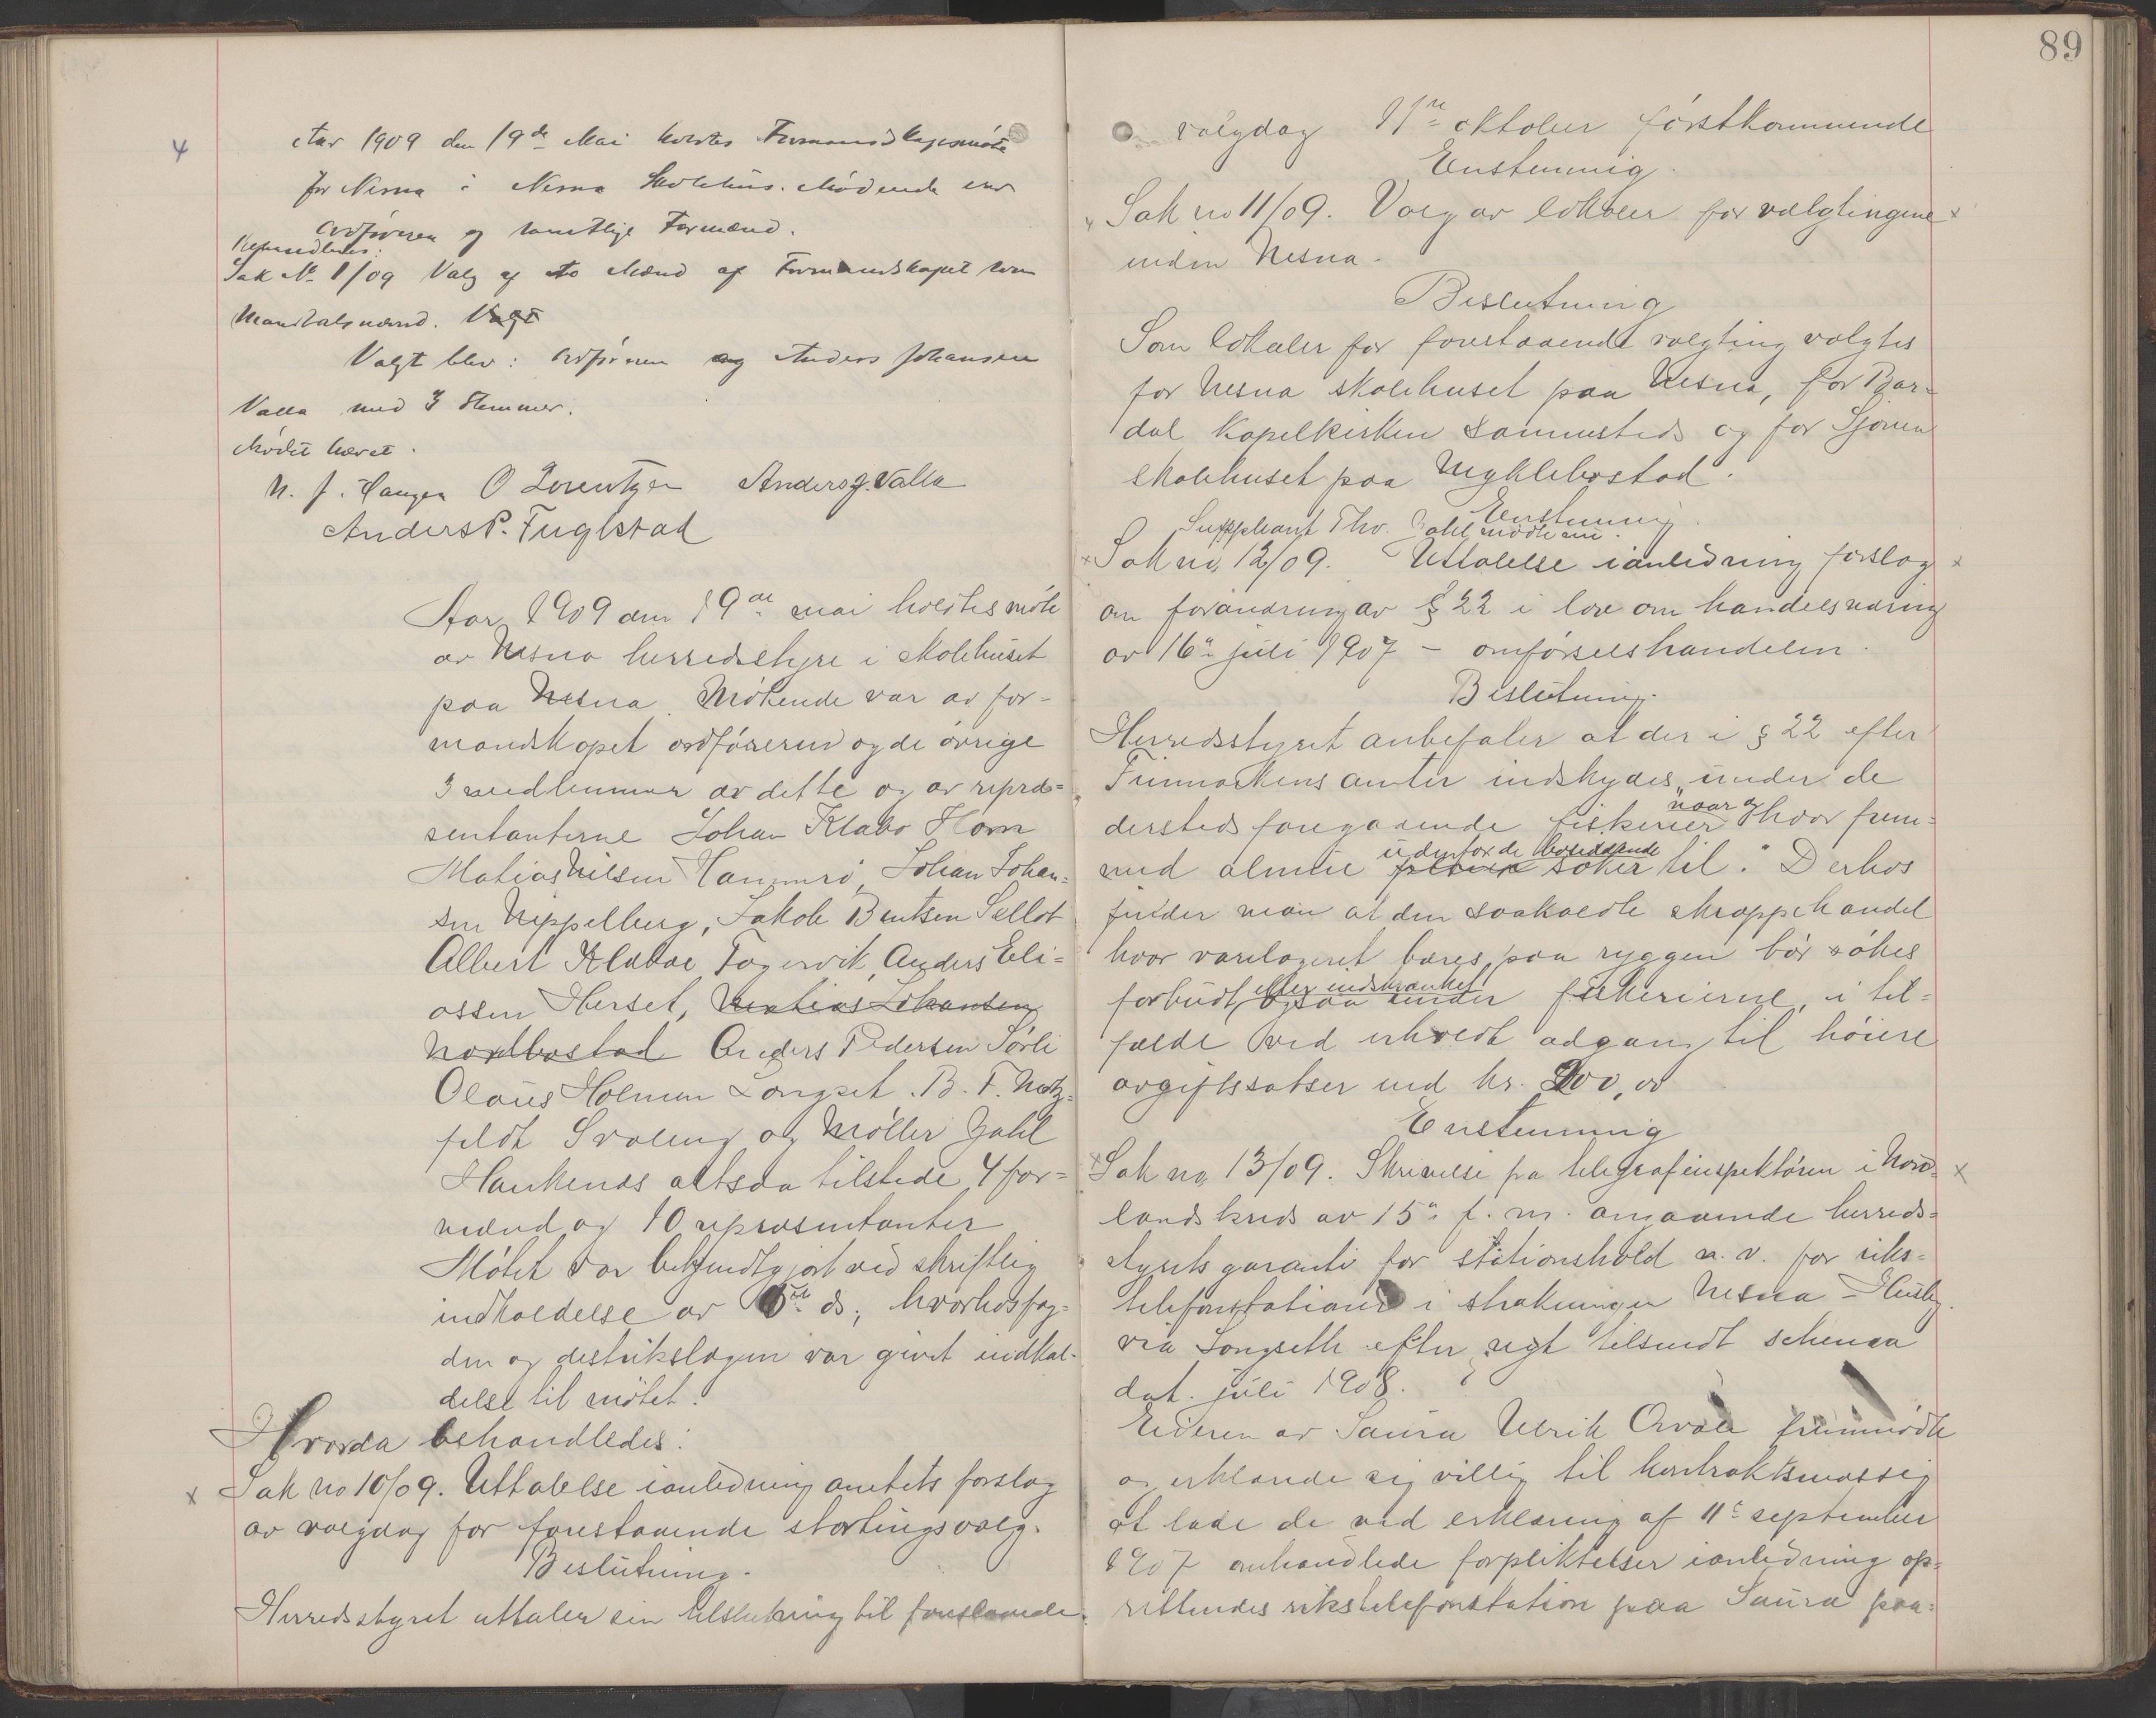 Aar 1909 den 19de Mai holdtes Formandskapsmøte
for Nesna i Nesna Skolehus. Mødende var
Ordføreren og samtlige Formænd.
Behandledes:
Sak No 1/09 Valg af to Mænd af Formandskapet som
Mandtalsnævnd. Valgt
Valgt blev: Ordføreren og Anders Johansen
Valla med 3 Stemmer.
Mødet hævet.
N. J. Haugen O Lorentzen Anders J. Valla
Anders P. Fuglstad
Aar 1909 den 19de mai holdtes møte
av Nesna herredsstyre i skolehuset
paa Nesna. Møtende var av for-
mandskapet ordføreren og de øvrige
3 medlemmer av dette og av repræ-
sentanterne Johan Klabo Horn
Matias Nilsen Hammerø, Johan Johan-
sen Nippelberg, Jakob Bentsen Selløt
Albert Klabae Fagervik, Anders Eli-
assen Herset, Matias Johansen
Nordbostad Anders Pedersen Sørli
Olaus Holmen Longset. B. F. Motz-
feldt Svaleng og Møller Jahl
Haukenæs altsaa tilstede 4 for-
mænd og 10 repræsentanter
Møtet var bekjendtgjort ved skriftlig
indkaldelse av 6te ds., hvorhos fog-
den og distrikslægen var givet indkal-
delse til møtet.
Hvorda behandledes:
x Sak no 10/09. Uttalelse ianledning amtets forslag
av valgdag for forestaaende stortingsvalg.
Beslutning.
Herredsstyret uttaler sin tilslutning til foreslaaede
89
valgdag 11te oktober førstkommende
Enstemmig.
x Sak no 11/09. Valg av lokaler for valgtingene x
inden Nesna.
Beslutning
Som lokaler for forestaaende valgting valgtes
for Nesna skolehuset paa Nesna, for Bar-
dal Kapelkirken sammesteds og for Sjona
skolehuset paa Myklebostad.
Enstemmig.
Suppleant Thv. Dahl mødte nu.
x Sak no 12/09. Uttalelse ianledning forslag x
om forandring av § 22 i lov om handelsnæring
av 16de juli 1907 - omførselshandelen.
Beslutning.
Herredsstyret anbefaler at der i § 22 efter
Finmarkens amter indskydes "under de
dersteds foregaaende fiskerier naar og hvor frem-
med almue udenfor de bosiddende søker til." Derhos
finder man at den saakaldte skrappehandel
hvor varelageret bæres paa ryggen bør søkes
forbudt, eller indskrænket ogsaa under fiskerierne, i til-
fælde ved erhvedt adgang til høiere
avgiftssatser ind kr. 200,00
Enstemmig
x Sak no 13/09. Skrivelse fra telegrafinspektøren i Nord- x
lands kreds av 15de f. m. angaaende herreds-
styrets garanti for stationshold m. v. for riks-
telefonstationer i strækningen Nesna - Husby
via Longseth efter regt tilsendt schema
dat. juli 1908.
Eieren av Saura Ulrik Orvær fremmødte
og erklærede sig villig til kontraktsmæssig
at lade de ved erklæring af 11te september
1907 omhandlede forpliktelser ianledning op-
rettendes rikstelefonstation paa Saura paa-